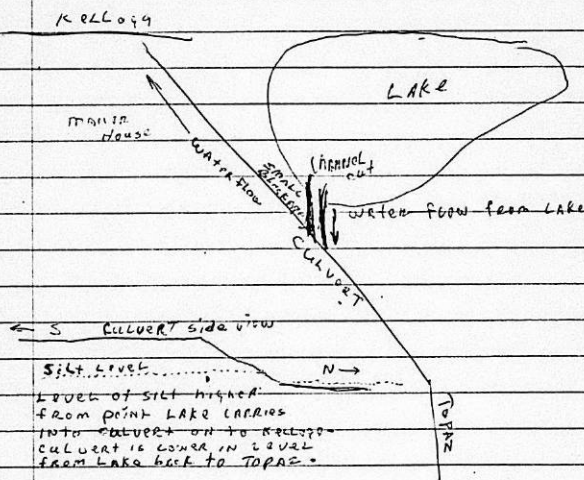 Kellogg
LAKE
MANOR
HOUSE
WATER flow
SMALL
CHANNEL
cut
WATER FLOW FROM LAKE
CULVERT
← S CULVERT side view
Silt Level
N →
Level of silt higher
from point LAKE CARRIES
INTO CULVERT ON to Kellogg.
CULVERT is LOWER IN LEVEL
from LAKE back to TOPAZ.
TOPAZ